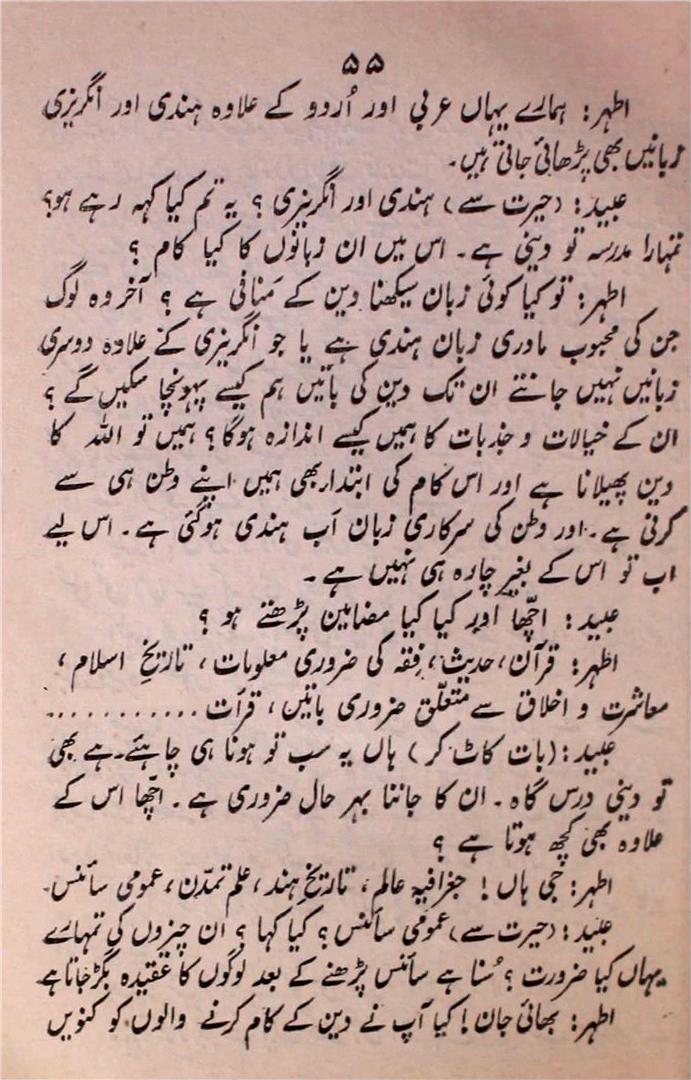 ۵۵
اطہر: ہمارے یہاں عربی اور اُردو کے علاوہ ہندی اور انگریزی
زبانیں بھی پڑھائی جاتی ہیں۔
عبید: (حیرت سے) ہندی اور انگریزی ؟ یہ تم کیا کہہ رہے ہو؟
تمہارا مدرسہ تو دینی ہے۔ اس میں ان زبانوں کا کیا کام ؟
اطہر: تو کیا کوئی زبان سیکھنا دین کے مَنافی ہے ؟ آخر وہ لوگ
جن کی محبوب مادری زبان ہندی ہے یا جو انگریزی کے علاوہ دوسری
زبانیں نہیں جانتے ان تک دین کی باتیں ہم کیسے پہونچا سکیں گے ؟
ان کے خیالات و جذبات کا ہمیں کیسے اندازہ ہوگا؟ ہمیں تو اللہ کا
دین پھیلانا ہے اور اس کام کی ابتدار بھی ہمیں اپنے وطن ہی سے
کرنی ہے۔ اور وطن کی سرکاری زبان اَب ہندی ہوگئی ہے۔ اس لیے
اب تو اس کے بغیر چارہ ہی نہیں ہے۔
عبید: اچّھا اور کیا کیا مضامین پڑھتے ہو ؟
اطہر: قرآن، حدیث، فقہ کی ضروری معلومات، تاریخِ اسلام،
معاشرت و اخلاق سے متعلّق ضروری باتیں، قرأت ...........
عبید: (بات کاٹ کر) ہاں یہ سب تو ہونا ہی چاہئے۔ ہے بھی
تو دینی درس گاہ۔ ان کا جاننا بہر حال ضروری ہے۔ اچّھا اس کے
علاوہ بھی کچھ ہوتا ہے ؟
اطہر: جی ہاں! جغرافیہ عالم، تاریخِ ہند، علم تمدّن، عمومی سائنس۔
عبید: (حیرت سے) عمومی سائنس؟ کیا کہا؟ ان چیزوں کی تمہارے
یہاں کیا ضرورت ؟ سُنا ہے سائنس پڑھنے کے بعد لوگوں کا عقیدہ بگڑ جاتا ہے
اطہر: بھائی جان! کیا آپ نے دین کے کام کرنے والوں کو کنویں